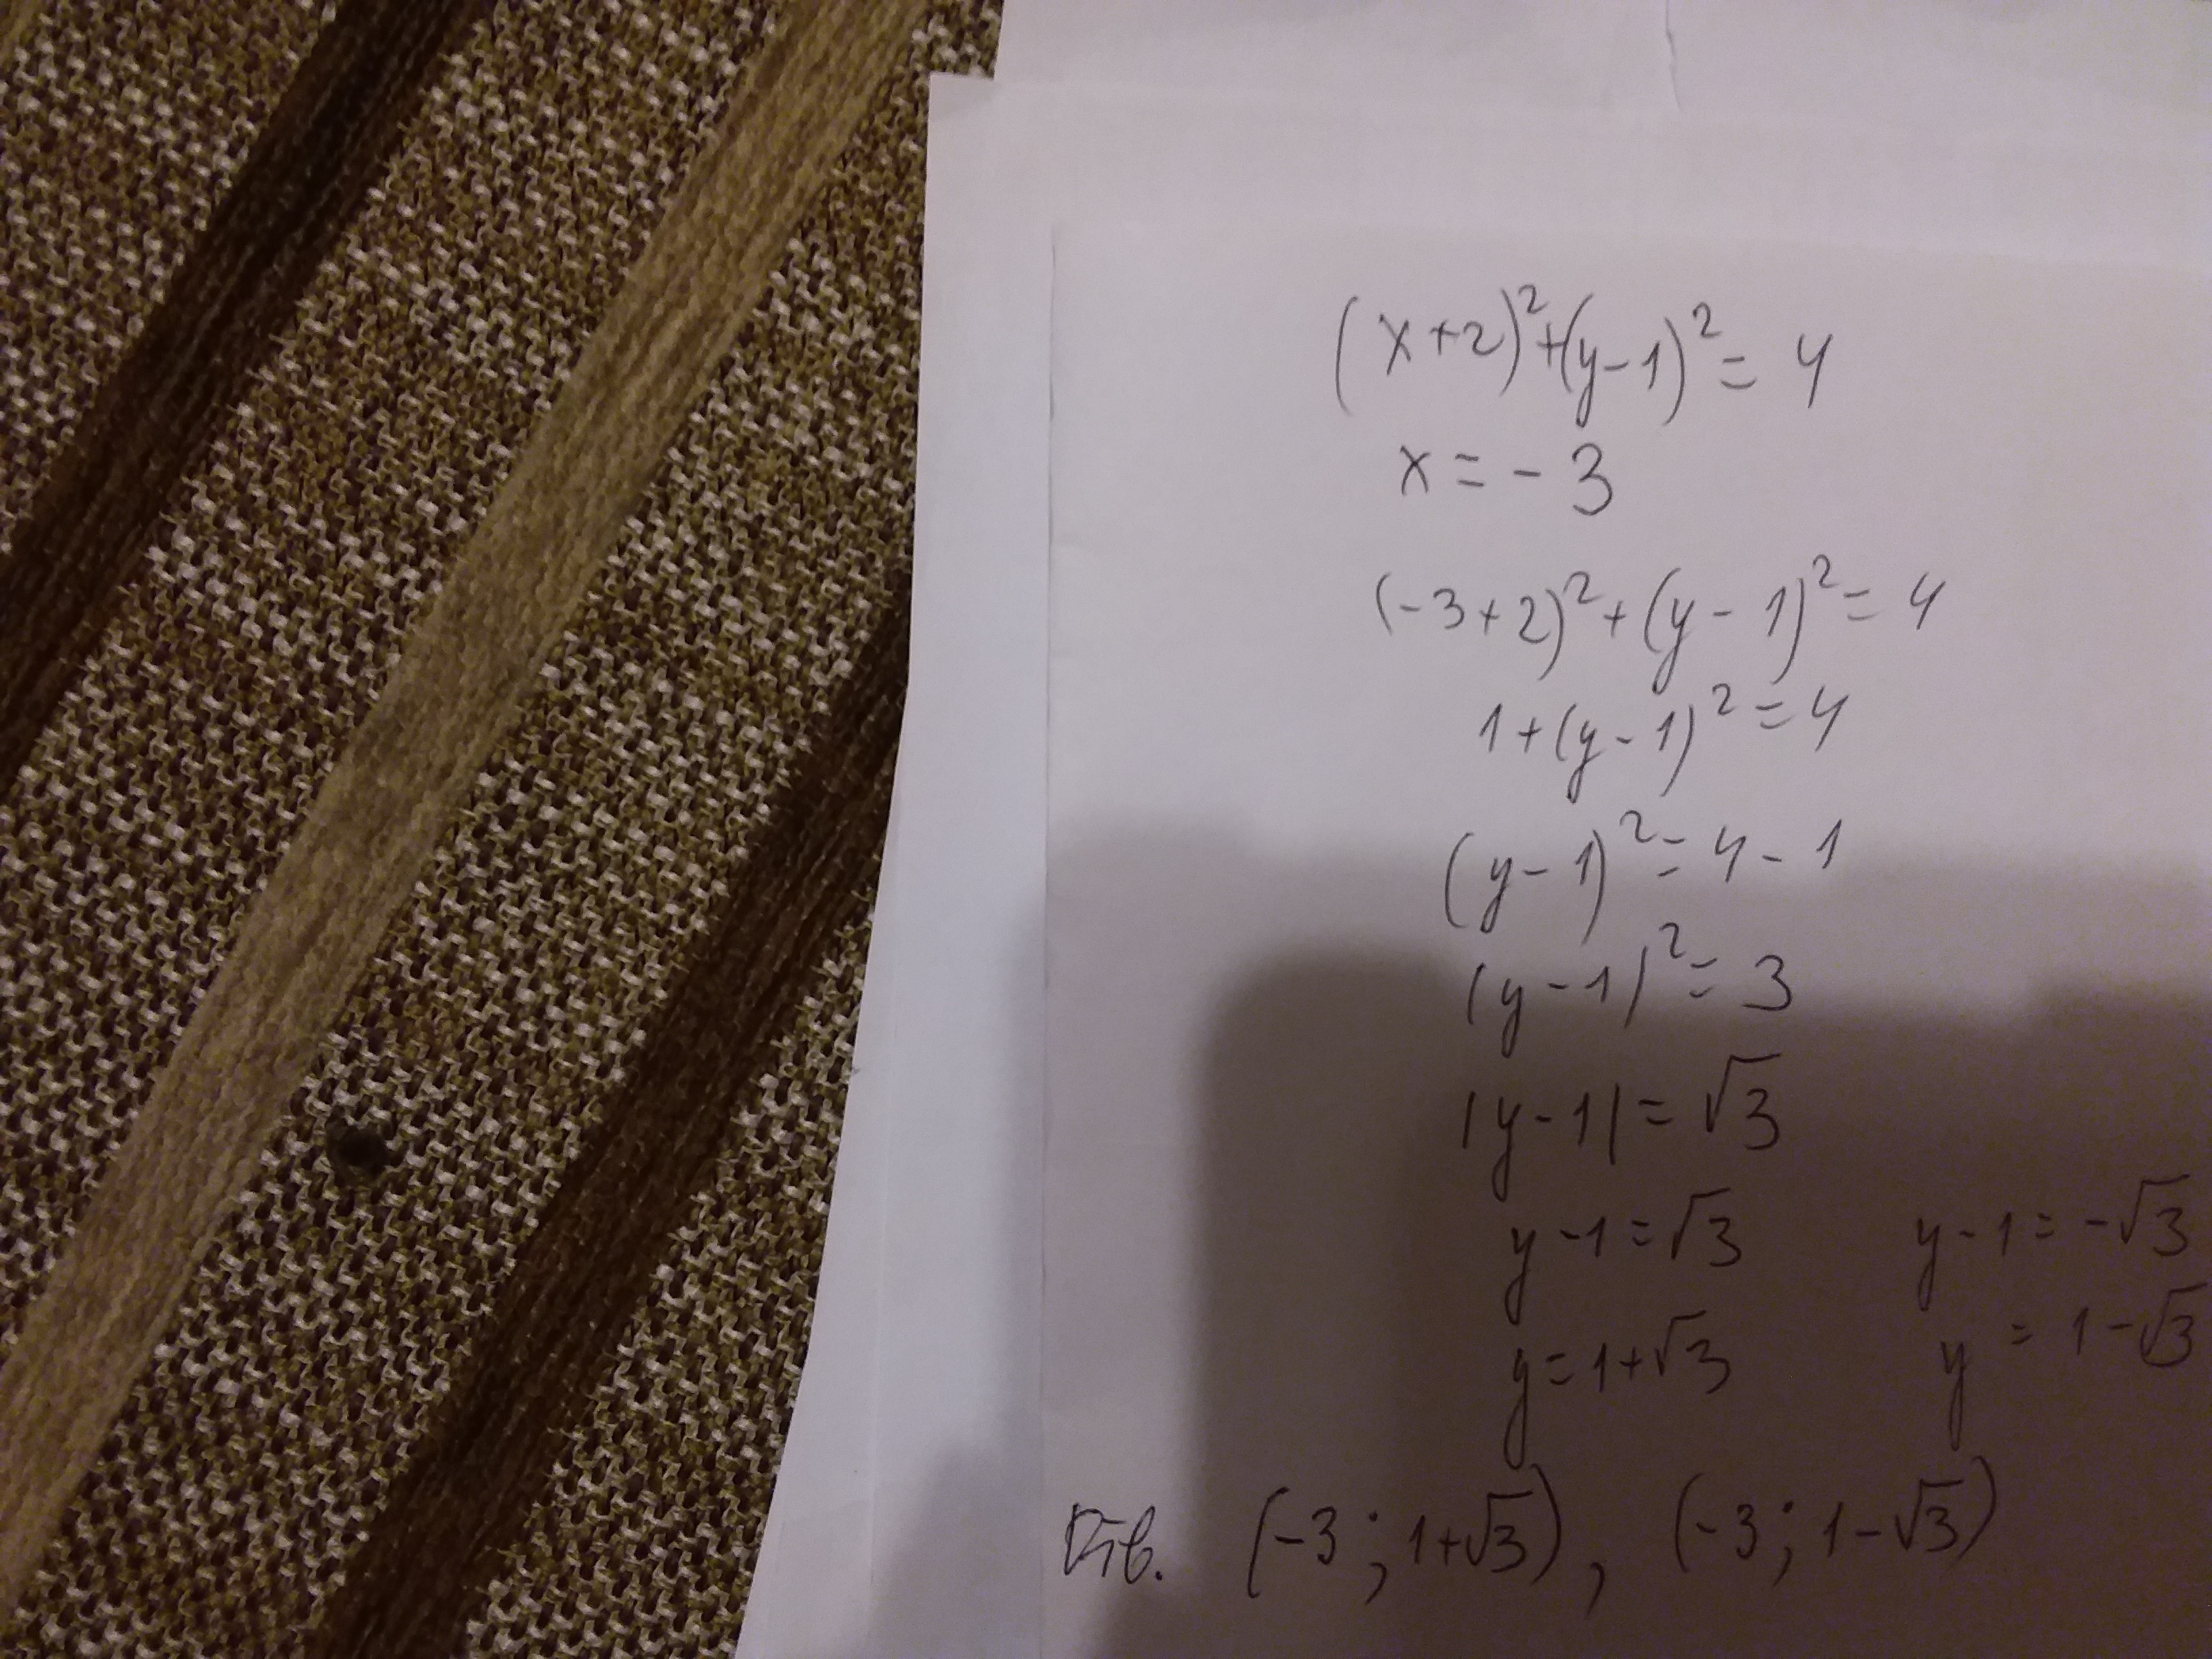 (x+2)²+(y-1)²=4
x=-3
(-3+2)²+(y-1)²=4
1+(y-1)²=4
(y-1)²=4-1
(y-1)²=3
|y-1|=√3
y-1=√3 y-1=-√3
y=1+√3 y=1-√3
Отв. (-3;1+√3), (-3;1-√3)